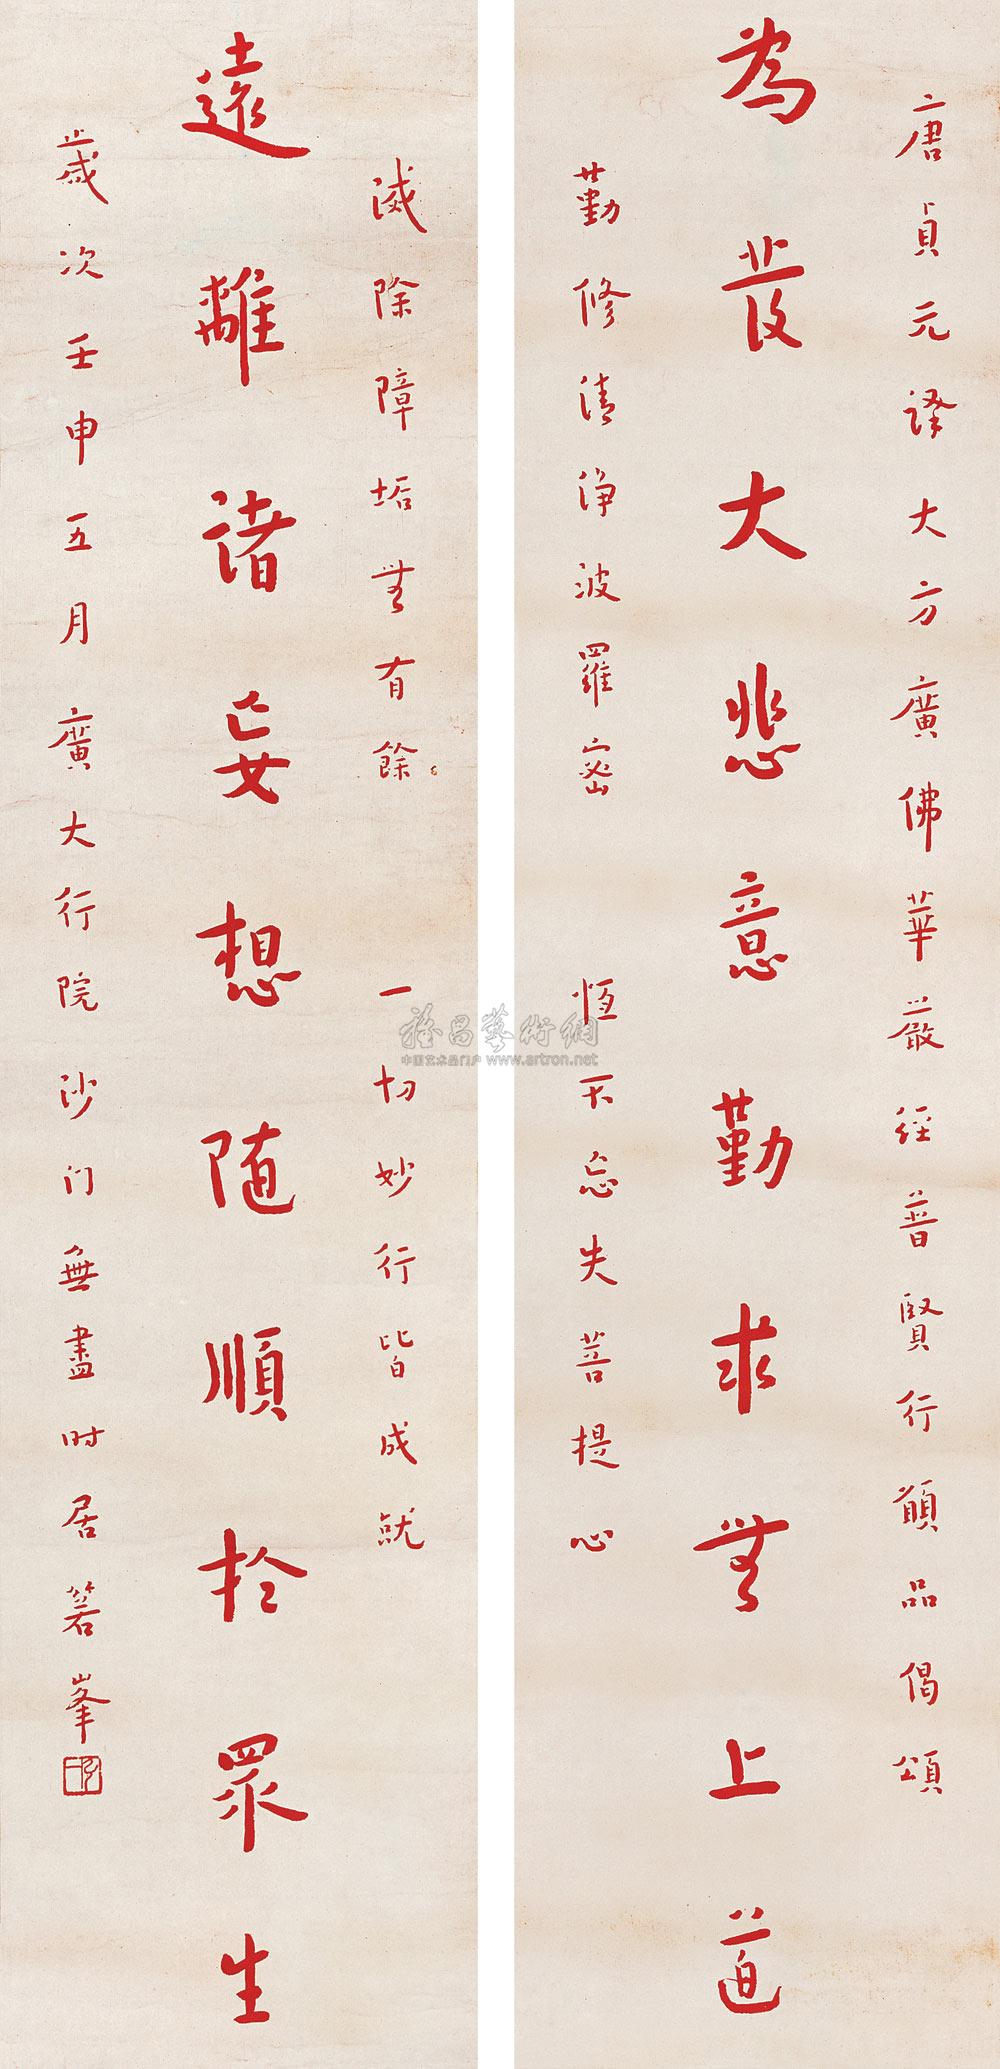 唐貞元譯大方廣佛華嚴經普賢行願品偈頌
為發大悲意勤求無上道
勤修清淨波羅密 恆不忘失菩提心
滅除障垢無有餘 一切妙行皆成就
遠離諸妄想随順於眾生
歲次壬申五月廣大行院沙门無盡时居箬峯
雅昌藝術網
中国艺术品门户 www.artron.net